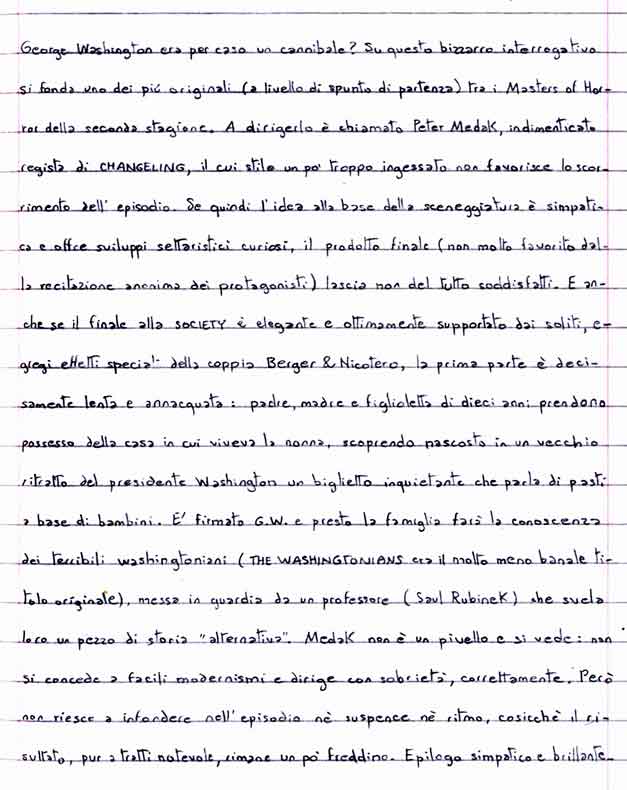 George Washington era per caso un cannibale? Su questo bizzarro interrogativo
si fonda uno dei più originali (a livello di spunto di partenza) tra i Masters of Hor-
ror della seconda stagione. A dirigerlo è chiamato Peter Medak, indimenticato
regista di CHANGELING, il cui stile un po' troppo ingessato non favorisce lo scor-
rimento dell'episodio. Se quindi l'idea alla base della sceneggiatura è simpati-
ca e offre sviluppi settaristici curiosi, il prodotto finale (non molto favorito dal-
la recitazione anonima dei protagonisti) lascia non del tutto soddisfatti. E an-
che se il finale alla SOCIETY è elegante e ottimamente supportato dai soliti, e-
gregi effetti speciali della coppia Berger & Nicotero, la prima parte è deci-
samente lenta e annacquata: padre, madre e figlioletta di dieci anni prendono
possesso della casa in cui viveva la nonna, scoprendo nascosto in un vecchio
ritratto del presidente Washington un biglietto inquietante che parla di pasti
a base di bambini. E' firmato G.W. e presto la famiglia farà la conoscenza
dei terribili washingtoniani (THE WASHINGTONIANS era il molto meno banale ti-
tolo originale), messa in guardia da un professore (Saul Rubinek) che svela
loro un pezzo di storia "alternativa". Medak non è un pivello e si vede: non
si concede a facili modernismi e dirige con sobrietà, correttamente. Però
non riesce a infondere nell'episodio nè suspence nè ritmo, cosicchè il ri-
sultato, pur a tratti notevole, rimane un po' freddino. Epilogo simpatico e brillante.